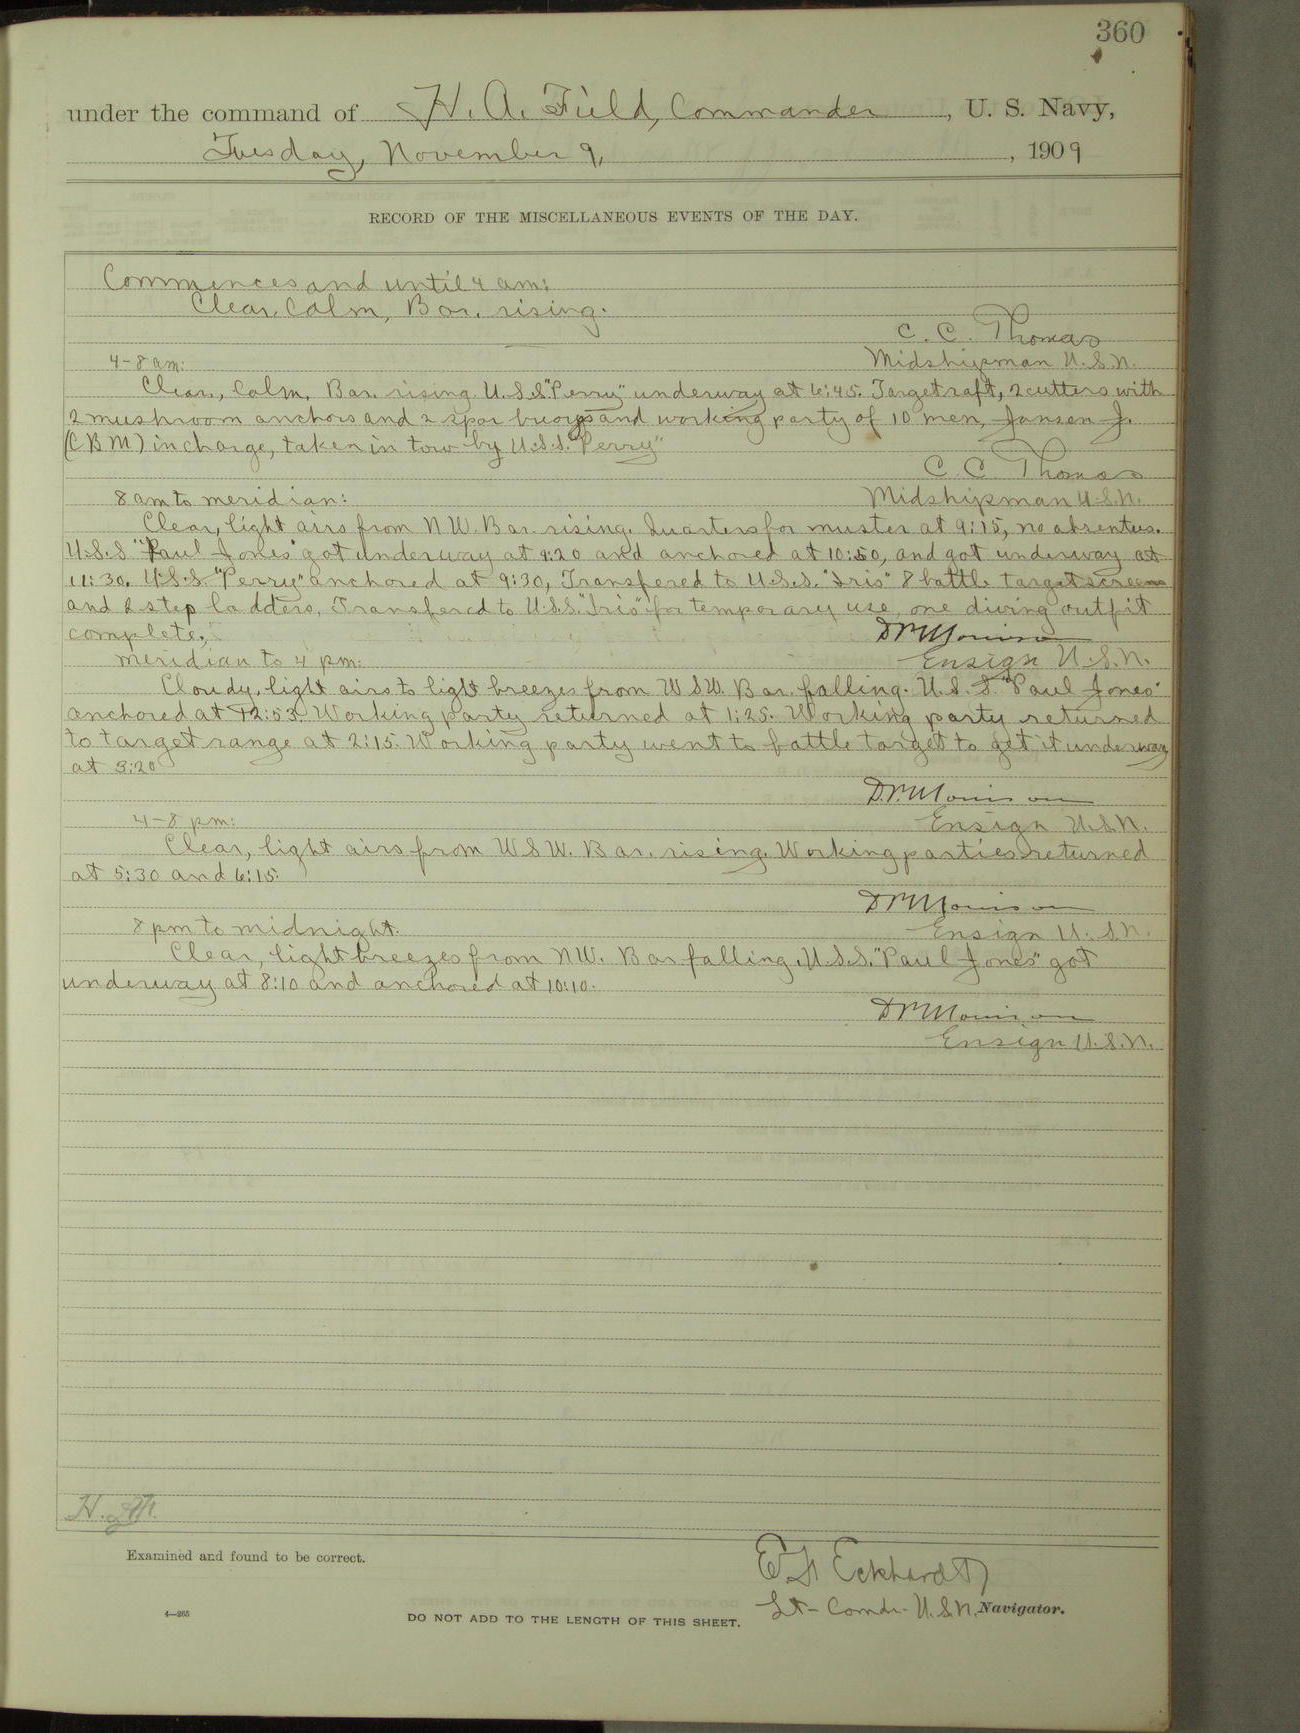 360
under the command of H. A. Field, Commander, U. S. Navy,
Tuesday, November 9, , 1909
RECORD OF THE MISCELLANEOUS EVENTS OF THE DAY.
Commences and until 4 am:
Clear, Calm, Bar. rising.
C. C. Thomas
Midshipman U.S.N.
4-8 am:
Clear, Calm, Bar. rising. U.S.S. "Perry" underway at 6:45. Target raft, 2 cutters with
2 mushroom anchors and 2 spar buoys and working party of 10 men, Jansen J.
(CBM) in charge, taken in tow by U.S.S. "Perry"
C. C. Thomas
Midshipman U.S.N.
8 am to meridian:
Clear, light airs from N.W. Bar. rising. Quarters for muster at 9:15, no absentees.
U.S.S "Paul Jones" got underway at 9:20 and anchored at 10:50, and got underway at
11:30. U.S.S. "Perry" anchored at 9:30, Transfered to U.S.S. "Iris" 8 battle target screens
and 2 step ladders, Transfered to U.S.S. "Iris" for temporary use, one diving outfit
complete.
Ensign U.S.N.
meridian to 4 pm:
Cloudy, light airs to light breezes from WSW. Bar. falling. U.S.S. "Paul Jones"
anchored at 12:53. Working party returned at 1:25. Working party returned
to target range at 2:15. Working party went to battle target to get it underway
at 3:20
Ensign U.S.N.
4-8 pm:
Clear, light airs from WSW. Bar. rising. Working parties returned
at 5:30 and 6:15.
Ensign U.S.N.
8 pm to midnight.
Clear, light breezes from NW. Bar falling. U.S.S. "Paul Jones" got
underway at 8:10 and anchored at 10:10.
Ensign U.S.N.
Examined and found to be correct.
Eckhardt
Lt-Comdr- U.S.N. Navigator.
4—265
DO NOT ADD TO THE LENGTH OF THIS SHEET.